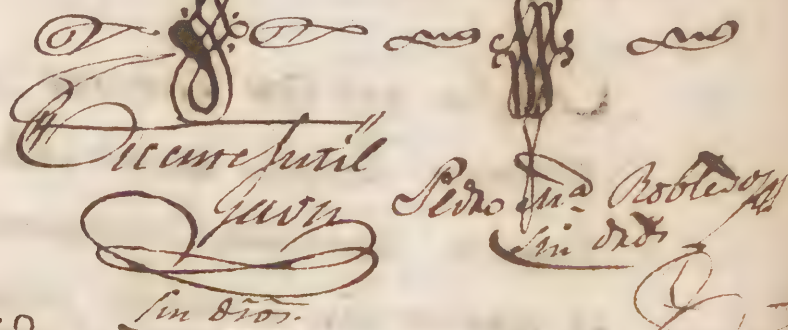 Vicente Jutil
Gavn
sin dros.
Pedro Ma Robledo
sin dros